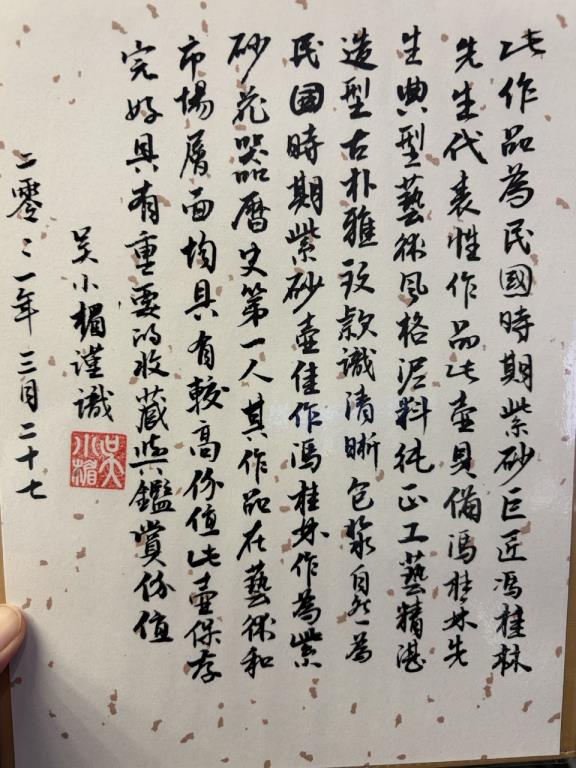 此作品為民國時期紫砂巨匠馮桂林
先生代表性作品此壶具備馮桂林先
生典型藝術风格泥料纯正工藝精湛
造型古朴雅致款識清晰包漿自然一為
民國時期紫砂壺佳作馮桂林作為紫
砂花器曆史第一人其作品在藝術和
市場層面均具有較高价值此壺保存
完好具有重要的收藏與鑑賞价值
吴小楣謹識
二零二一年三月二十七
吴小楣